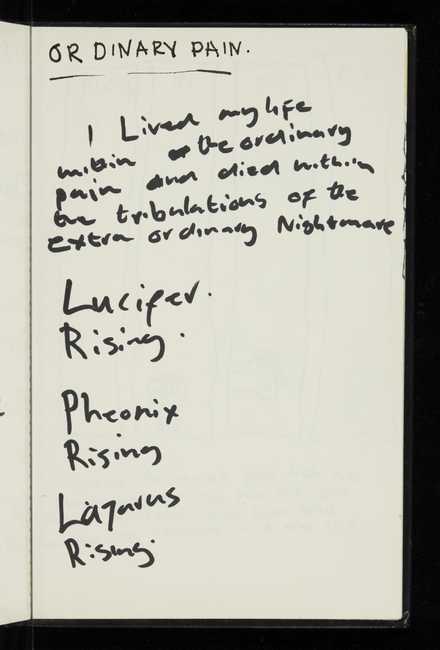 ORDINARY PAIN.
I Lived my life
within the ordinary
pain and died within
the tribulations of the
Extra ordinary Nightmare
Lucifer.
Rising.
Pheonix
Rising
Lazarus
Rising.